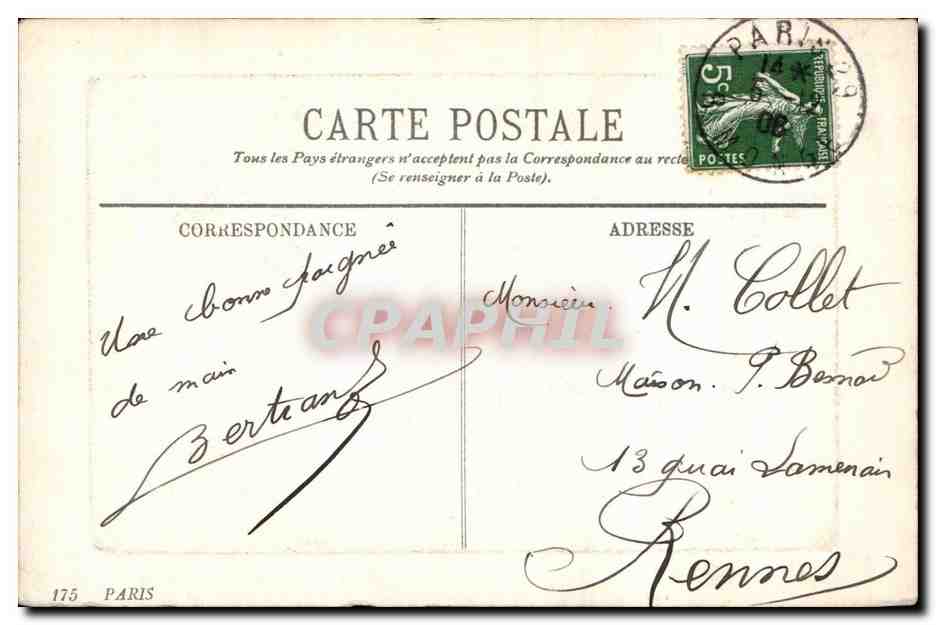 CARTE POSTALE
Tous les Pays étrangers n'acceptent pas la Correspondance au recto
(Se renseigner à la Poste).
5c
REPUBLIQUE FRANÇAISE
POSTES
PARIS
CORRESPONDANCE
ADRESSE
Une bonne poignée
de main
Bertrand
Monsieur H. Collet
Maison P. Besnard
13 quai Lamenais
Rennes
CPAPHIL
175 PARIS